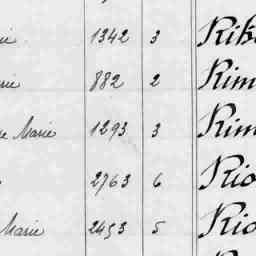 1342 3 Rib
rie 882 2 Rim
Marie 1293 3 Rim
2763 6 Rio
Marie 2453 5 Rio